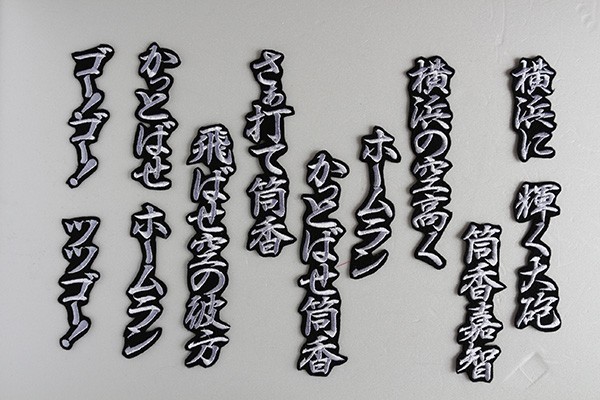 横浜に 輝く大砲
筒香嘉智
横浜の空高く
ホームラン
かっとばせ筒香
さぁ打て筒香
飛ばせ空の彼方
かっとばせ ホームラン
ゴー!ゴー! ツツゴー!